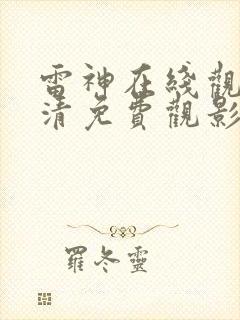 雷神在綫觀
清免費觀影
羅冬靈